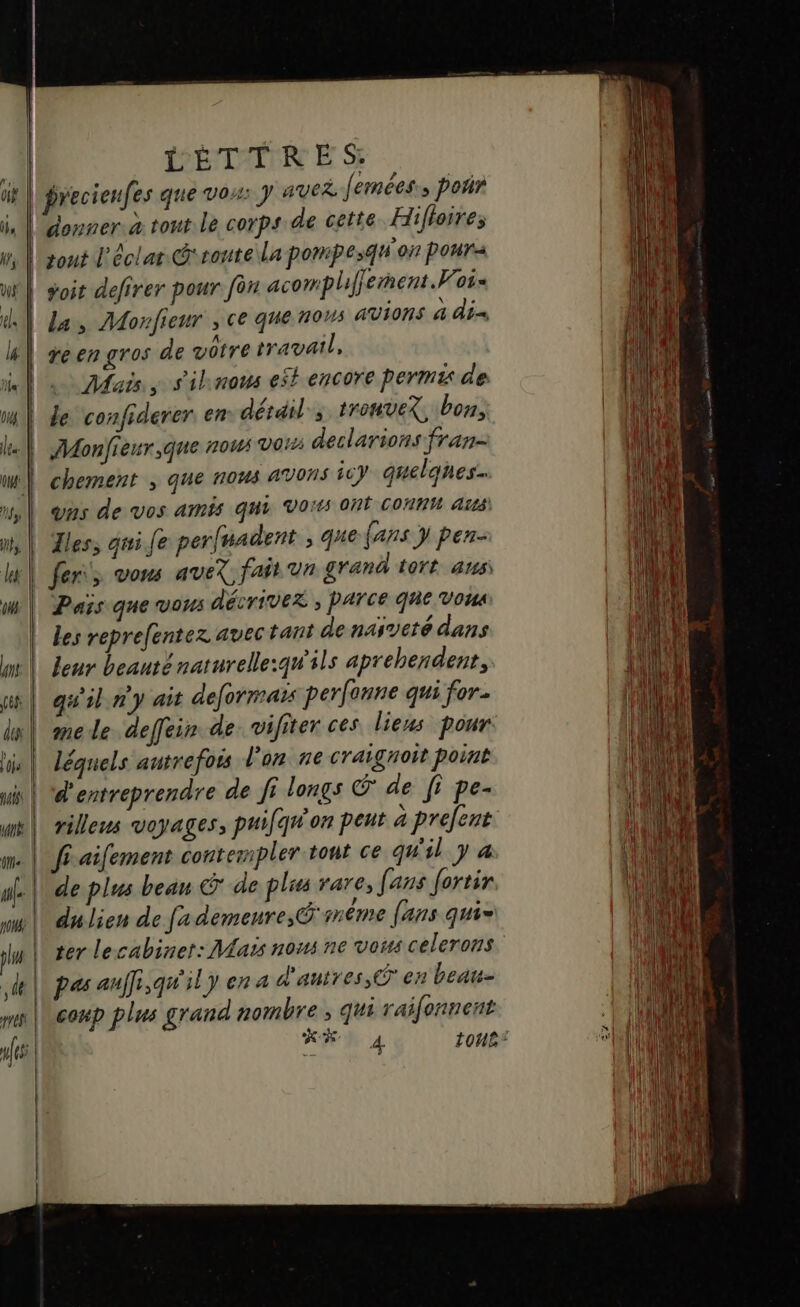 LETTRES.
precieuſes que vous y avez ſemées, pour
donner à tout le corps de cette Hiſtoire,
tout l'éclat & toute la pompe, qu'on pour-
roit deſirer pour ſon acompliſſement. Voi-
la, Monſieur, ce que nous avions à di-
re en gros de vôtre travail,
Mais, s'il nous eſt encore permis de
le conſiderer en détail, trouvez, bon,
Monſieur, que nous vous declarions fran-
chement, que nous avons icy quelques-
uns de vos amis qui vous ont connu aus
Iles, qui ſe perſuadent, que ſans y pen-
ſer, vous avez, fait un grand tort aus
Païs que vous décrivez, parce que vous
les repreſentez avec tant de naïveté dans
leur beauté naturelle: qu'ils aprehendent,
qu'il n'y ait deformais perſonne qui for-
me le deſſein de viſiter ces lieus pour
léquels autrefois l'on ne craignoit point
d'entreprendre de ſi longs & de ſi pe-
rilleus voyages, puiſqu'on peut à preſent
ſi aiſement contempler tout ce qu'il y a
de plus beau & de plus rare, ſans ſortir
du lieu de ſa demeure, & même ſans qui-
ter le cabinet: Mais nous ne vous celerons
pas auſſi, qu'il y en a d'autres, & en beau-
coup plus grand nombre, qui raiſonnent
** 4 tout